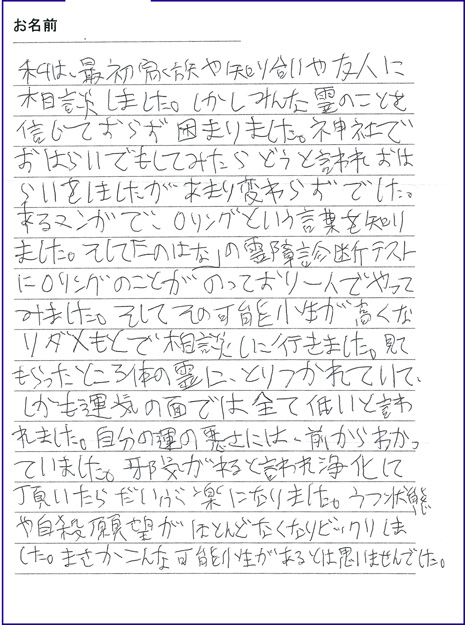 お名前
私は、最初家族や知り合いや友人に
相談しました。しかしみんな霊のことを
信じておらず困まりました。神社で
おはらいでもしてみたらどうと言われおは
らいをしましたがあまり変わらずでした。
あるマンガで、Oリングという言葉を知り
ました。そして「このはな」の霊障診断テスト
にOリングのことがのっており一人でやって
みました。そしてその可能性が高くな
りダメもとで相談しに行きました。見て
もらったところ体の霊に、とりつかれていて、
しかも運気の面では全て低いと言わ
れました。自分の運の悪さには、前からわかっ
ていました。邪気があると言われ浄化して
頂いたらだいぶ楽になりました。うつ状態
や自殺願望がほとんどなくなりビックリしま
した。まさかこんな可能性があるとは思いませんでした。